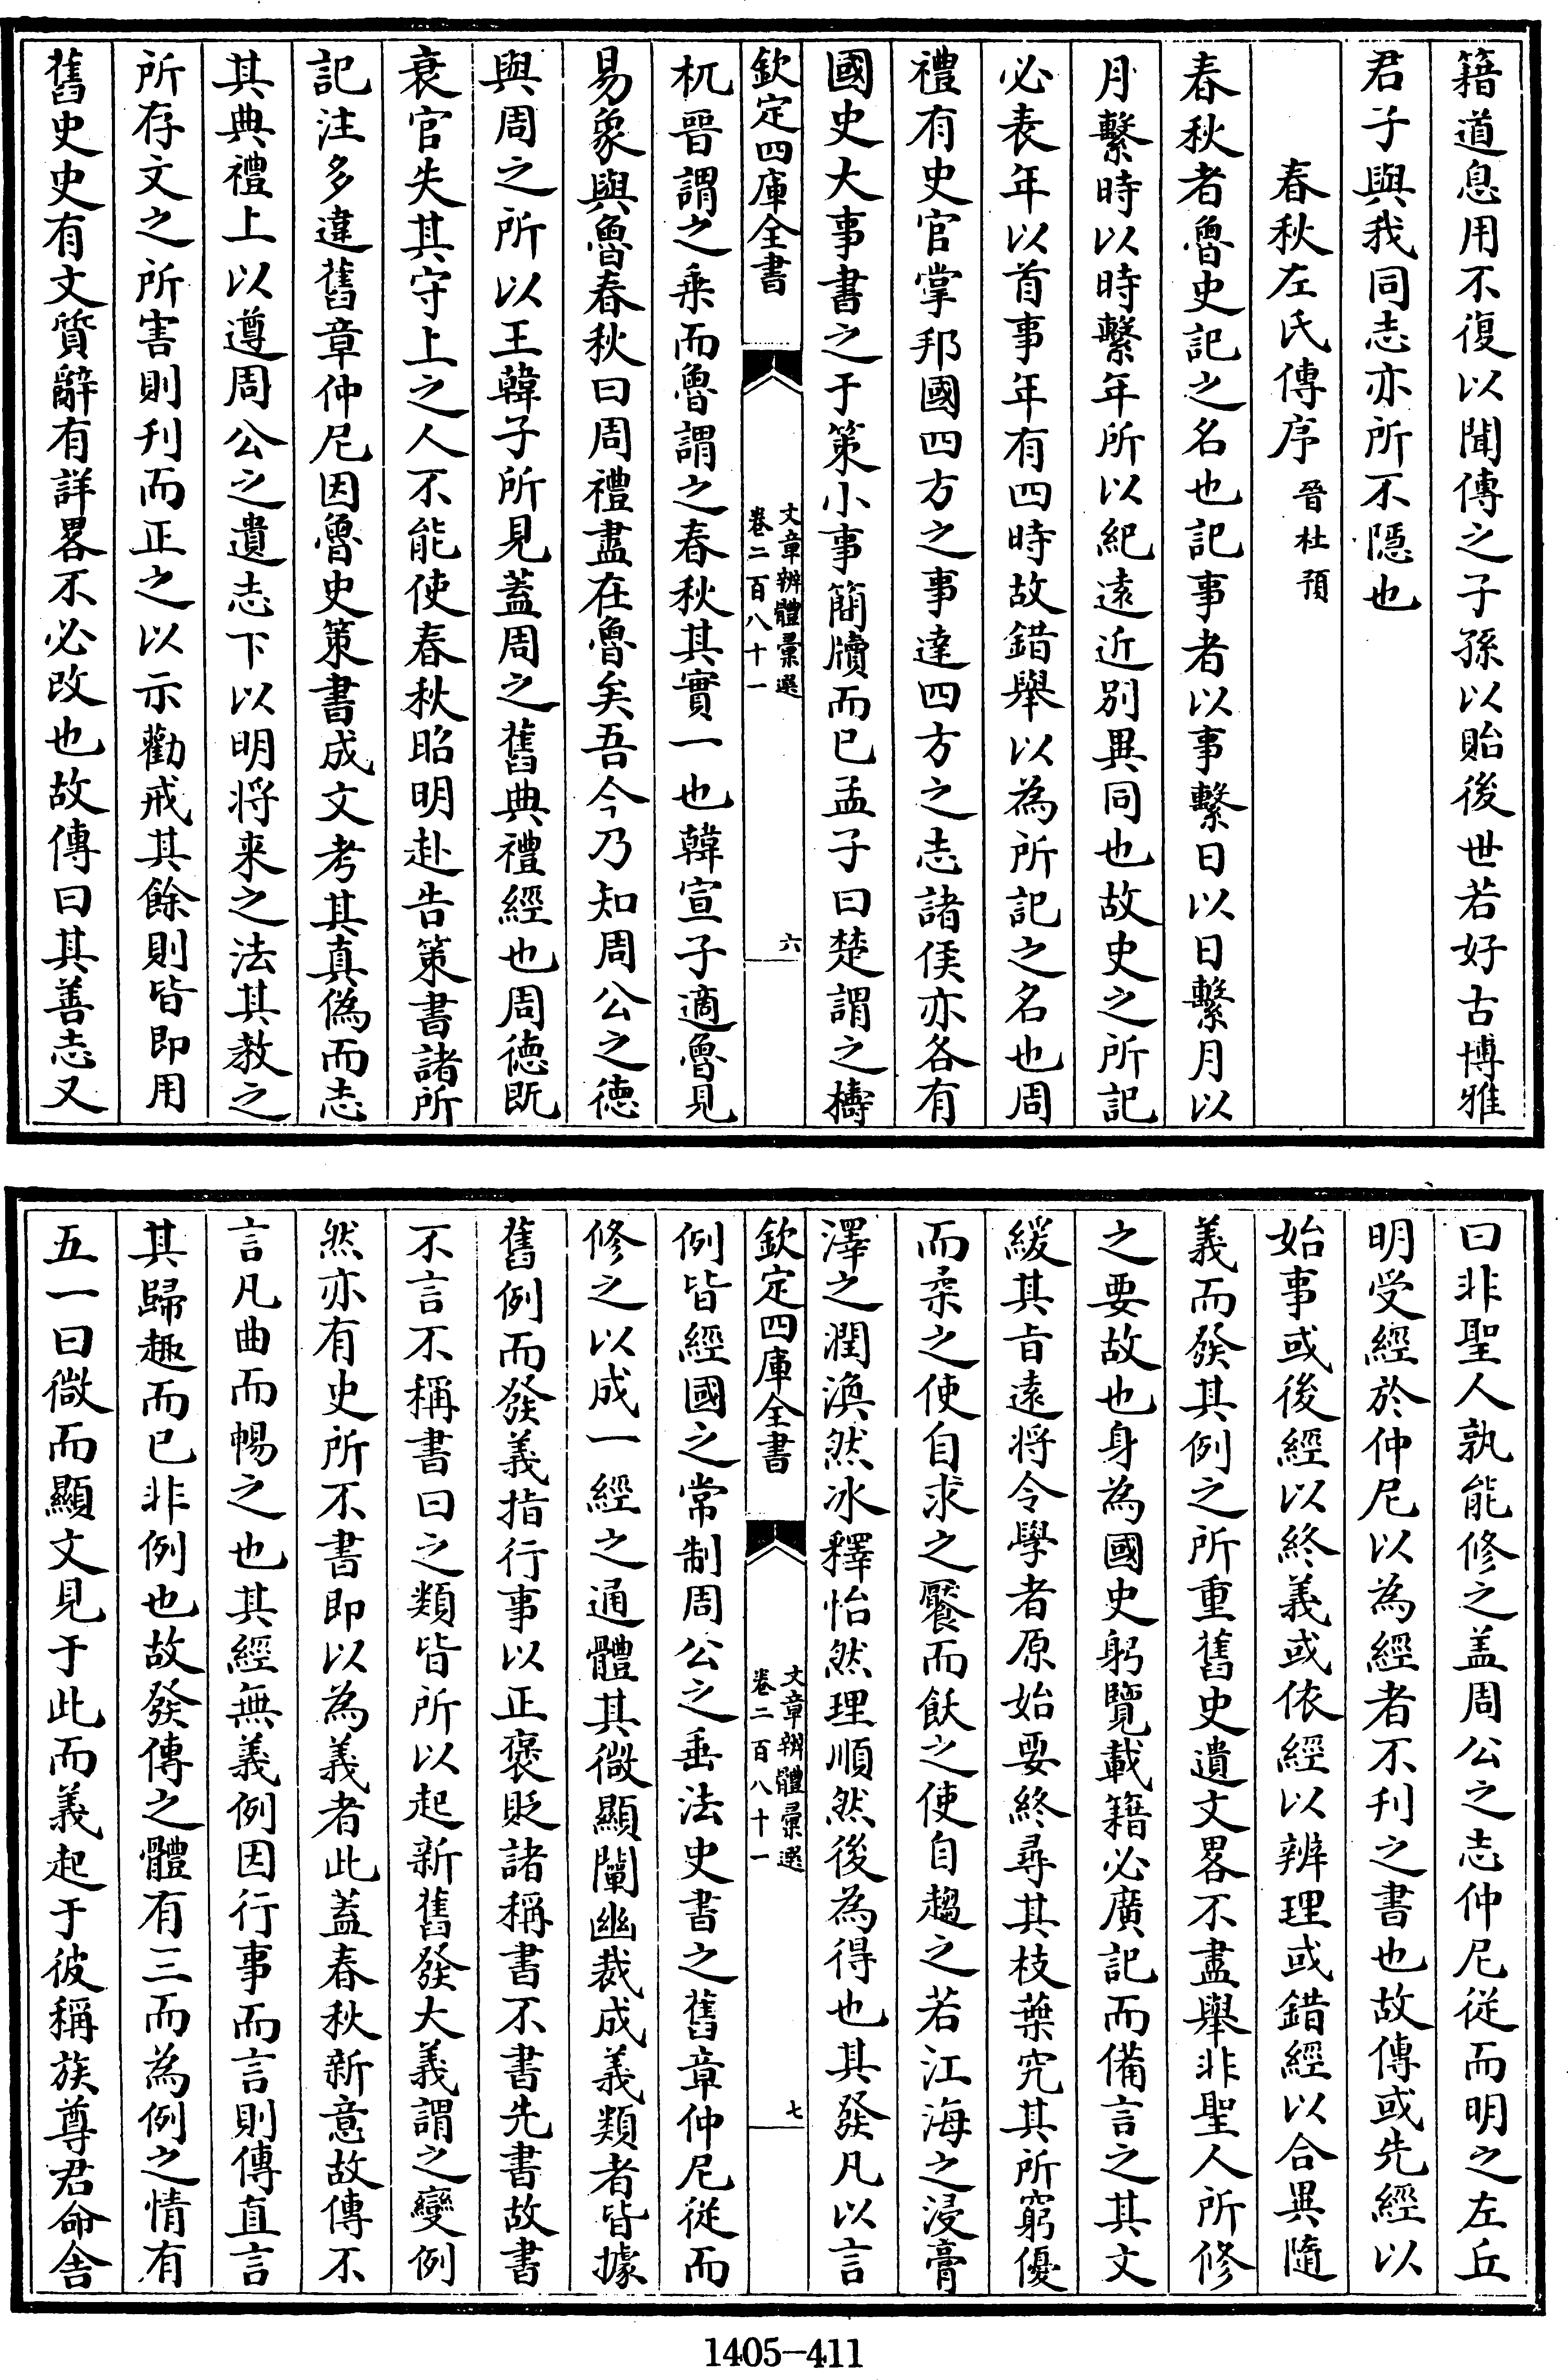 籍道息用不復以聞傳之子孫以貽後世若好古博雅
君子與我同志亦所不隱也
春秋左氏傳序 晉杜預
春秋者魯史記之名也記事者以事繫日以日繫月以
月繫時以時繫年所以紀遠近別異同也故史之所記
必表年以首事年有四時故錯舉以為所記之名也周
禮有史官掌邦國四方之事達四方之志諸侯亦各有
國史大事書之于策小事簡牘而已孟子曰楚謂之檮
欽定四庫全書
文章辨體彙選
卷二百八十一
六
杌晉謂之乗而魯謂之春秋其實一也韓宣子適魯見
易象與魯春秋曰周禮盡在魯矣吾今乃知周公之德
與周之所以王韓子所見蓋周之舊典禮經也周德既
衰官失其守上之人不能使春秋昭明赴告策書諸所
記注多違舊章仲尼因魯史策書成文考其真偽而志
其典禮上以遵周公之遺志下以明将來之法其教之
所存文之所害則刋而正之以示勸戒其餘則皆即用
舊史史有文質辭有詳畧不必改也故傳曰其善志又
曰非聖人孰能修之盖周公之志仲尼從而明之左丘
明受經於仲尼以為經者不刋之書也故傳或先經以
始事或後經以終義或依經以辨理或錯經以合異隨
義而發其例之所重舊史遺文畧不盡舉非聖人所修
之要故也身為國史躬覽載籍必廣記而備言之其文
緩其旨遠将令學者原始要終尋其枝葉究其所窮優
而柔之使自求之饜而飫之使自趨之若江海之浸膏
澤之潤渙然冰釋怡然理順然後為得也其發凡以言
欽定四庫全書
文章辨體彙選
卷二百八十一
七
例皆經國之常制周公之垂法史書之舊章仲尼從而
修之以成一經之通體其微顯闡幽裁成義類者皆據
舊例而發義指行事以正褒貶諸稱書不書先書故書
不言不稱書曰之類皆所以起新舊發大義謂之變例
然亦有史所不書即以為義者此蓋春秋新意故傳不
言凡曲而暢之也其經無義例因行事而言則傳直言
其歸趣而已非例也故發傳之體有三而為例之情有
五一曰微而顯文見于此而義起于彼稱族尊君命舍
1405-411